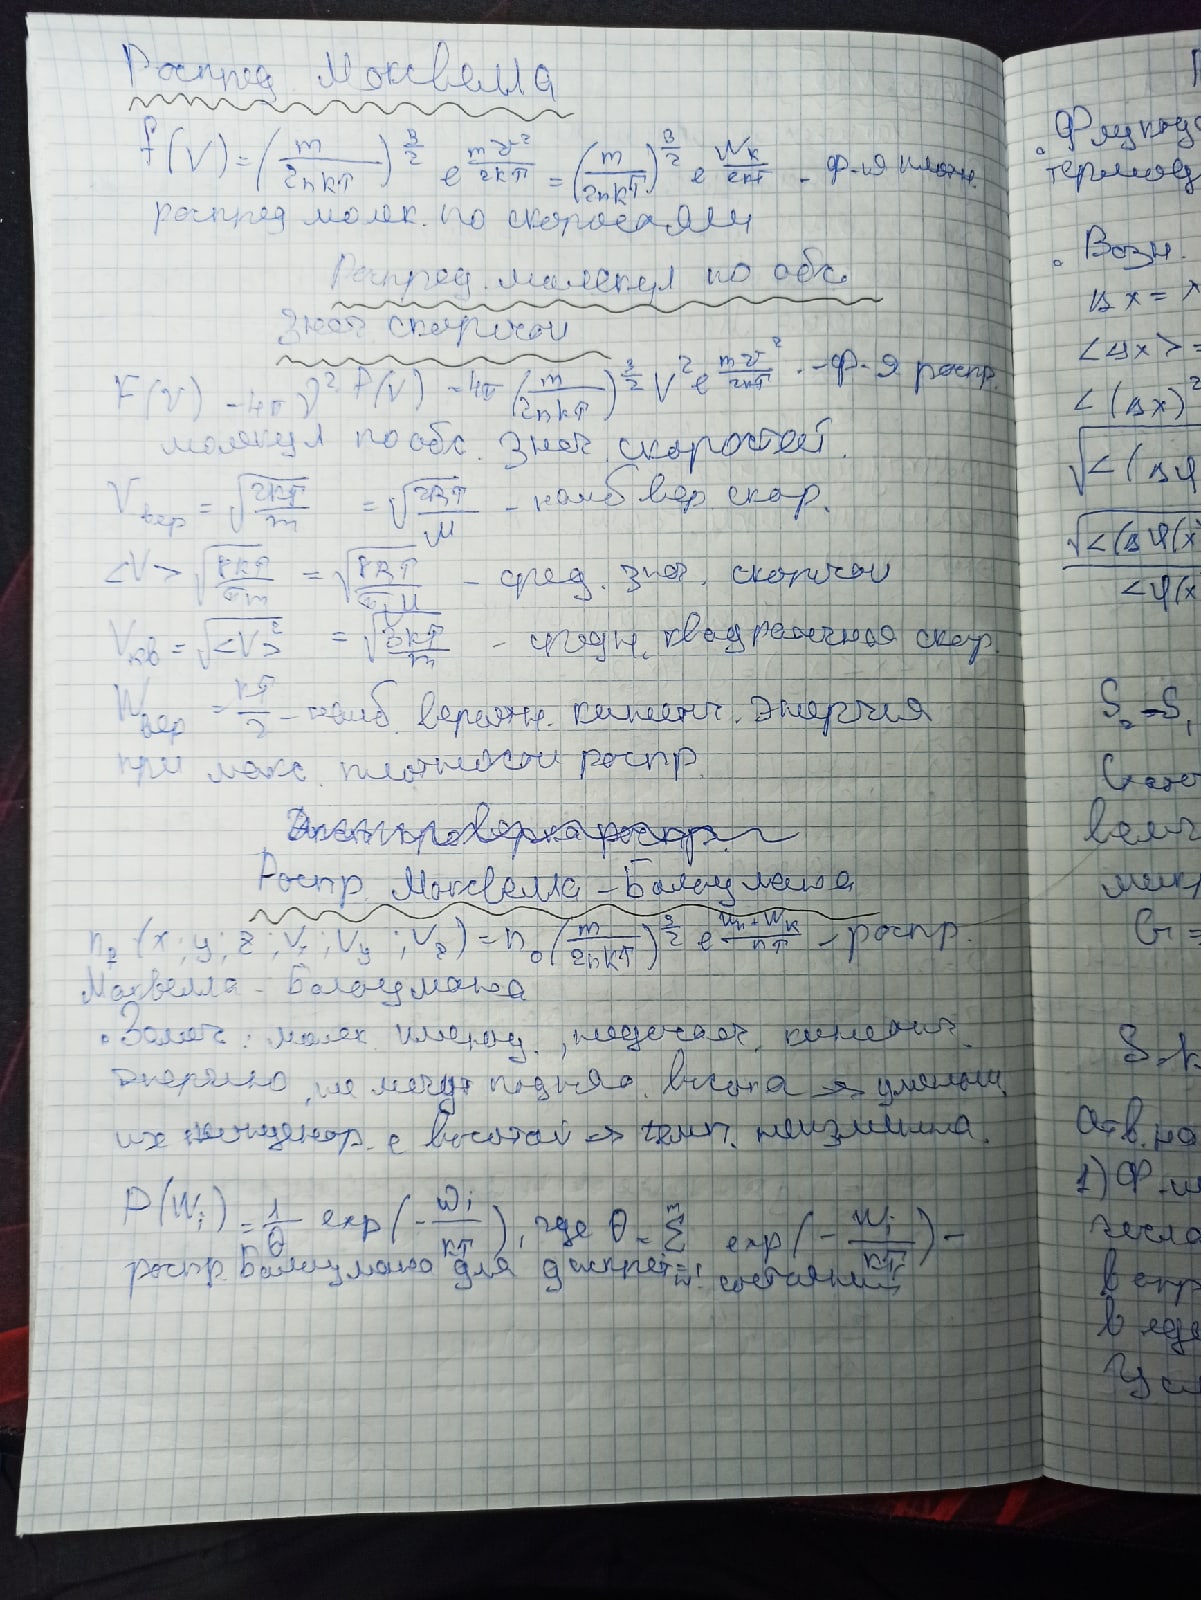 Распред. Максвелла
f(V) = (m/2πkT)^3/2 e^mv²/2kT = (m/2πkT)^3/2 e^Wк/2kT - ф-я плотн.
распред молек. по скоростям
Распред. молекул по абс.
знач скоростей
F(V) - 4π V² f(V) - 4π (m/2πkT)^3/2 V² e^mv²/2kT - ф-я распр.
молекул по абс. знач. скоростей.
Vвер = √2kT/m = √2RT/M - наиб вер скор.
<V> √8kT/πm = √8RT/πM - сред. знач. скоростей
Vкв = √<V²> = √3kT/m - средн. квадратичная скор.
Wвер = kT/2 - наиб. вероятн. кинетич. энергия
при макс. плотности распр.
Распр. Максвелла - Больцмана
n₂ (x; y; z; Vx; Vy; Vz) = n₀ (m/2πkT)^3/2 e^Wп+Wк/kT - распр.
Максвелла - Больцмана
• Замеч: молек. имеющ., недостат. кинетич.
энергию, не могут поднят. высота → уменьш.
их концентр. с высотой → темп. неизменна.
P(Wi) = 1/θ exp(-Wi/kT), где θ = Σ exp(-Wi/kT) -
распр. Больцмана для дискретн. состояний
Флукту
термод
• Возн.
Δx = x
<Δx> =
<(Δx)²
√<(Δφ
√<(Δφ(x
<φ(x
S₂ - S₁
вели
G =
S = k
Отв. на
1) Ф-
числа
в
в еди
Ус